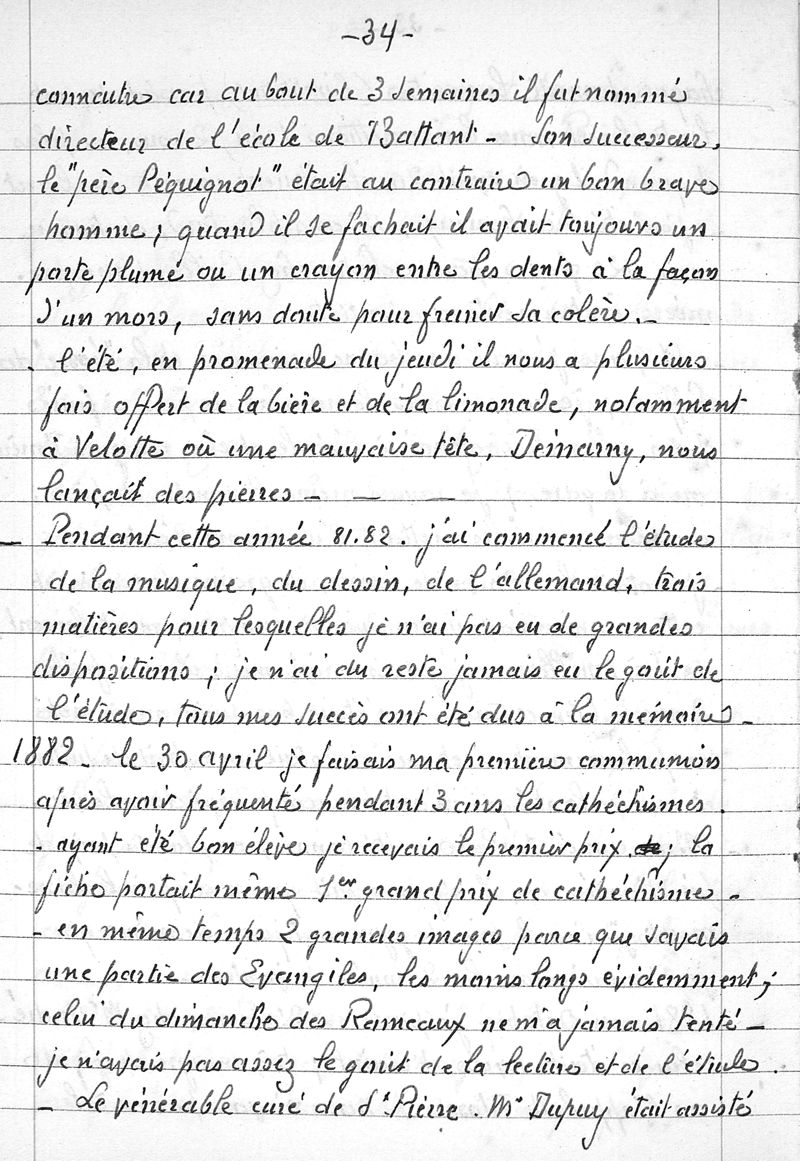 -34-
connaitre car au bout de 3 semaines il fut nommé
directeur de l'école de Battant - Son successeur,
le "père Péquignot" était au contraire un bon brave
homme ; quand il se fachait il avait toujours un
porte plume ou un crayon entre les dents à la façon
d'un mors, sans doute pour freiner sa colère. -
. l'été, en promenade du jeudi il nous a plusieurs
fois offert de la bière et de la limonade, notamment
à Velotte où une mauvaise tête, Demarny, nous
lançait des pierres - - -
- Pendant cette année 81.82. j'ai commencé l'étude
de la musique, du dessin, de l'allemand, trois
matières pour lesquelles je n'ai pas eu de grandes
dispositions ; je n'ai du reste jamais eu le goût de
l'étude, tous mes succès ont été dus à la mémoire -
1882 - le 30 avril je faisais ma première communion
après avoir fréquenté pendant 3 ans les cathéchismes.
. ayant été bon élève je recevais le premier prix ; la
fiche portait même 1er grand prix de cathéchisme -
- en même temps 2 grandes images parce que savais
une partie des Evangiles, les moins longs évidemment ;
celui du dimanche des Rameaux ne m'a jamais tenté -
je n'avais pas assez le goût de la lecture et de l'étude.
- Le vénérable curé de St Pierre. Mr Dupuy était assisté